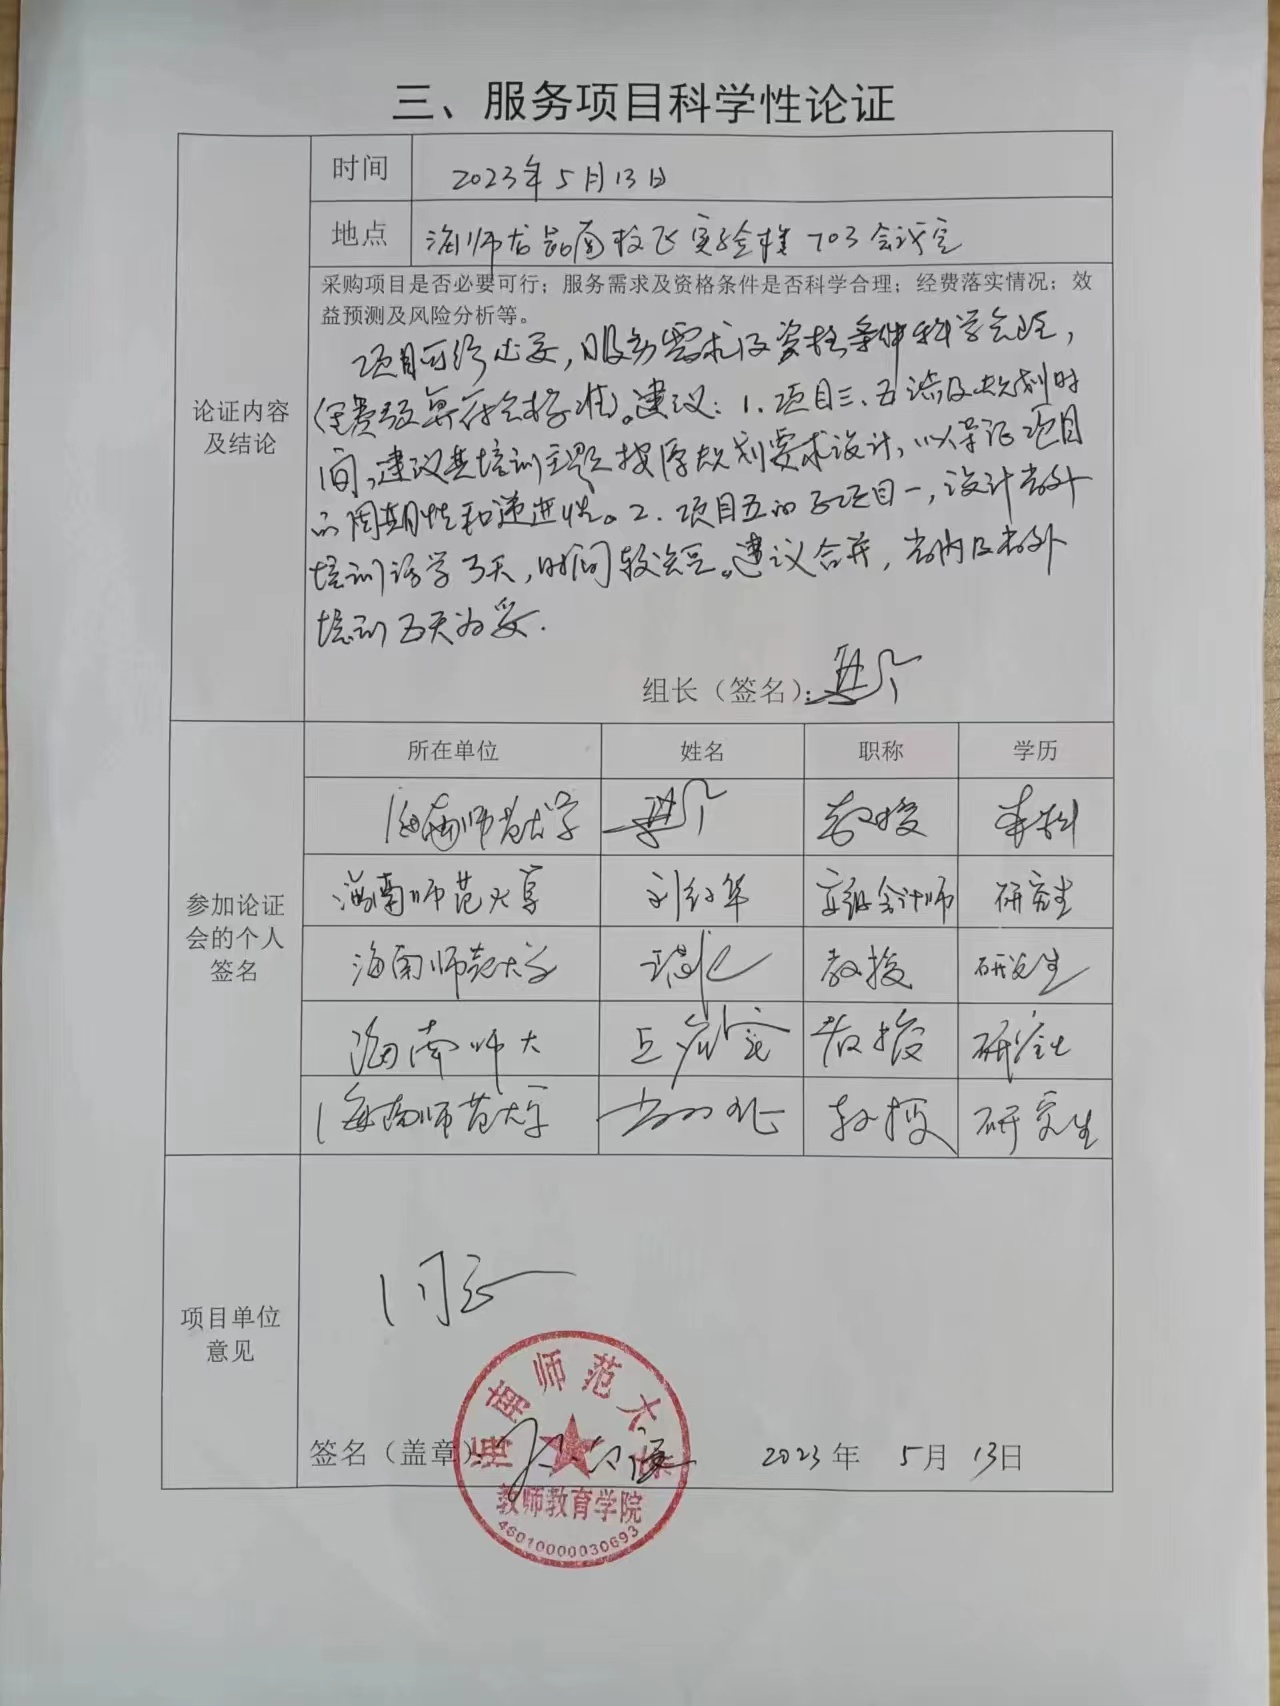 三、服务项目科学性论证
时间
2023年5月13日
地点
海师龙昆南校区实验楼703会议室
采购项目是否必要可行；服务需求及资格条件是否科学合理；经费落实情况；效
益预测及风险分析等。
论证内容
及结论
项目可行必要，服务需求及资格条件科学合理，
经费预算符合标准。建议：1.项目三、五涉及规划时
间，建议其培训主题按原规划要求设计，以保证项目
的周期性和递进性。2.项目五的子项目一，设计省外
培训访学3天，时间较短。建议合并，省内及省外
培训五天为妥.
组长（签名）：
所在单位 姓名 职称 学历
参加论证
会的个人
签名
海南师范大学 教授 本科
海南师范大学 刘红华 高级会计师 研究生
海南师范大学 教授 研究生
海南师大 教授 研究生
海南师范大学 教授 研究生
项目单位
意见
同意
海南师范大学
签名（盖章）： 2023年 5月 13日
教师教育学院
46010000030693